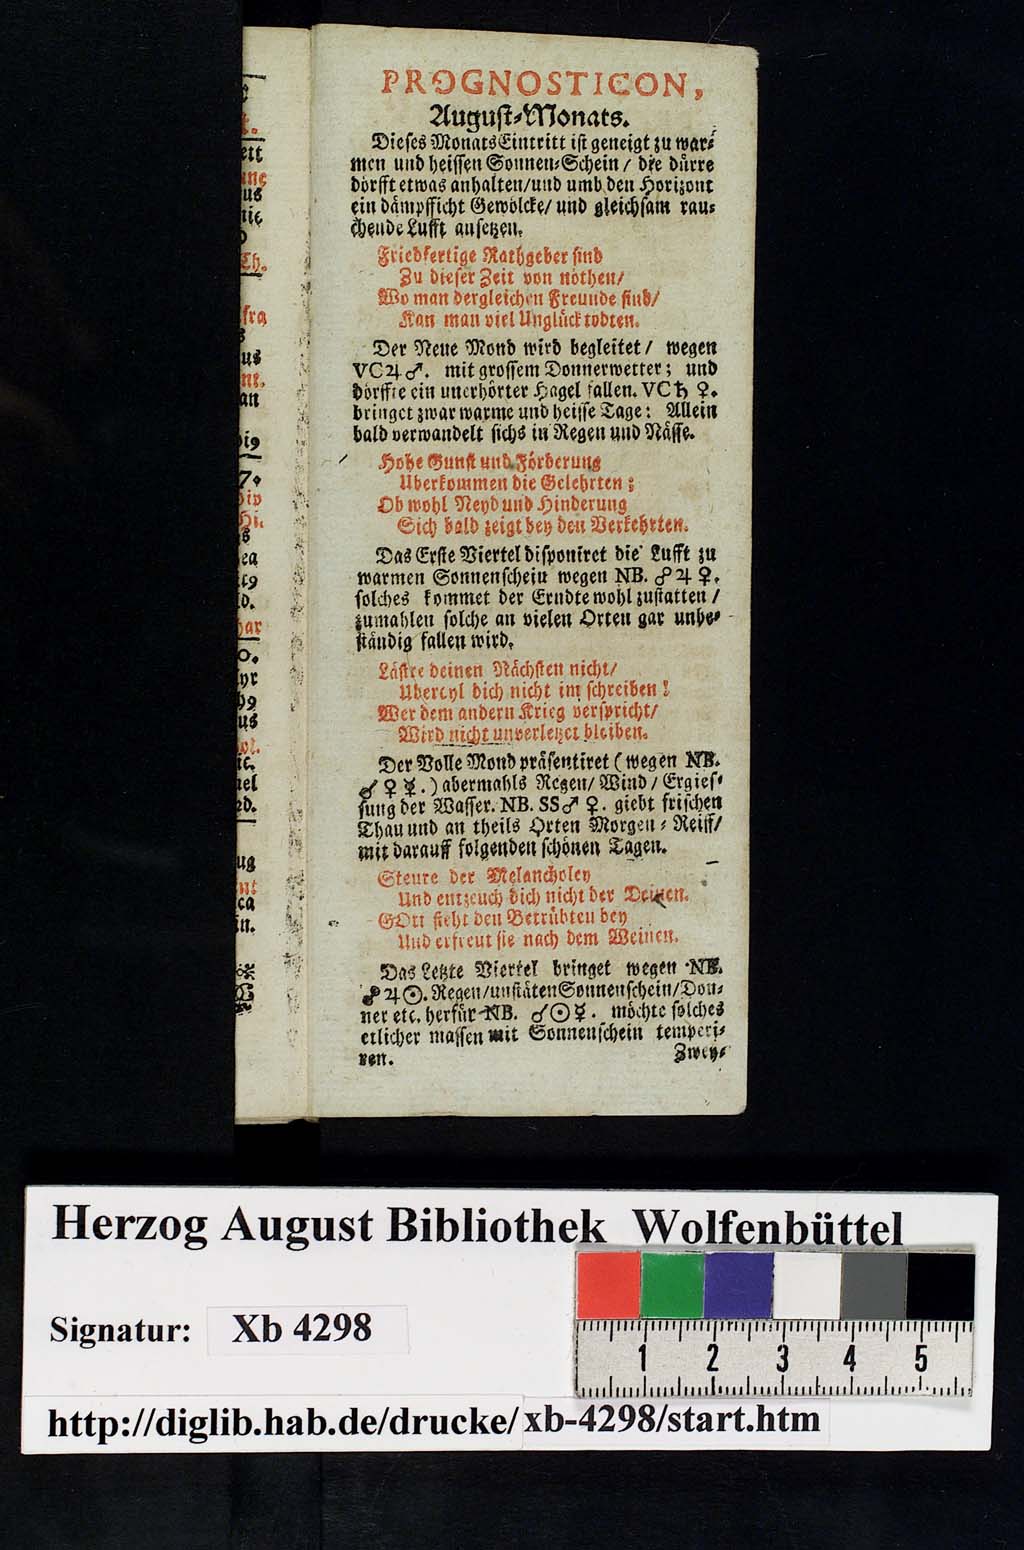 PROGNOSTICON,
August-Monats.
Dieses Monats Eintritt ist geneigt zu war-
men und heissen Sonnen-Schein / die dürre
dörfft etwas anhalten / und umb den Horizont
ein dämpfficht Gewölcke / und gleichsam rau-
chende Lufft ansetzen.
Friedfertige Rathgeber sind
Zu dieser Zeit von nöthen /
Wo man dergleichen Freunde sind /
Kan man viel Unglück tödten.
Der Neue Mond wird begleitet / wegen
VC♃♂. mit grossem Donnerwetter; und
dörffte ein unerhörter Hagel fallen. VC♄ ♀.
bringet zwar warme und heisse Tage: Allein
bald verwandelt sichs in Regen und Nässe.
Hohe Gunst und Förderung
Uberkommen die Gelehrten;
Ob wohl Neyd und Hinderung
Sich bald zeigt bey den Verkehrten.
Das Erste Viertel disponiret die Lufft zu
warmen Sonnenschein wegen NB. ☍♃ ♀.
solches kommet der Erndte wohl zustatten /
zumahlen solche an vielen Orten gar unbe-
ständig fallen wird.
Lästre deinen Nächsten nicht /
Ubereyl dich nicht im schreiben!
Wer dem andern Krieg verspricht /
Wird nicht unverletzet bleiben.
Der Volle Mond präsentiret (wegen NB.
☌ ♀ ☿.) abermahls Regen / Wind / Ergies-
sung der Wasser. NB. SS♂ ♀. giebt frischen
Thau und an theils Orten Morgen-Reiff /
mit darauff folgenden schönen Tagen.
Steure der Melancholey
Und entzeuch dich nicht der Deinen.
GOtt sieht den Betrübten bey
Und erfreut sie nach dem Weinen.
Das Letzte Viertel bringet wegen NB.
☍♃☉. Regen / unstäten Sonnenschein / Don-
ner etc. herfür NB. ☌☉☿. möchte solches
etlicher massen mit Sonnenschein temperi-
ren.
Zwey-
Herzog August Bibliothek Wolfenbüttel
Signatur: Xb 4298
1 2 3 4 5
http://diglib.hab.de/drucke/xb-4298/start.htm